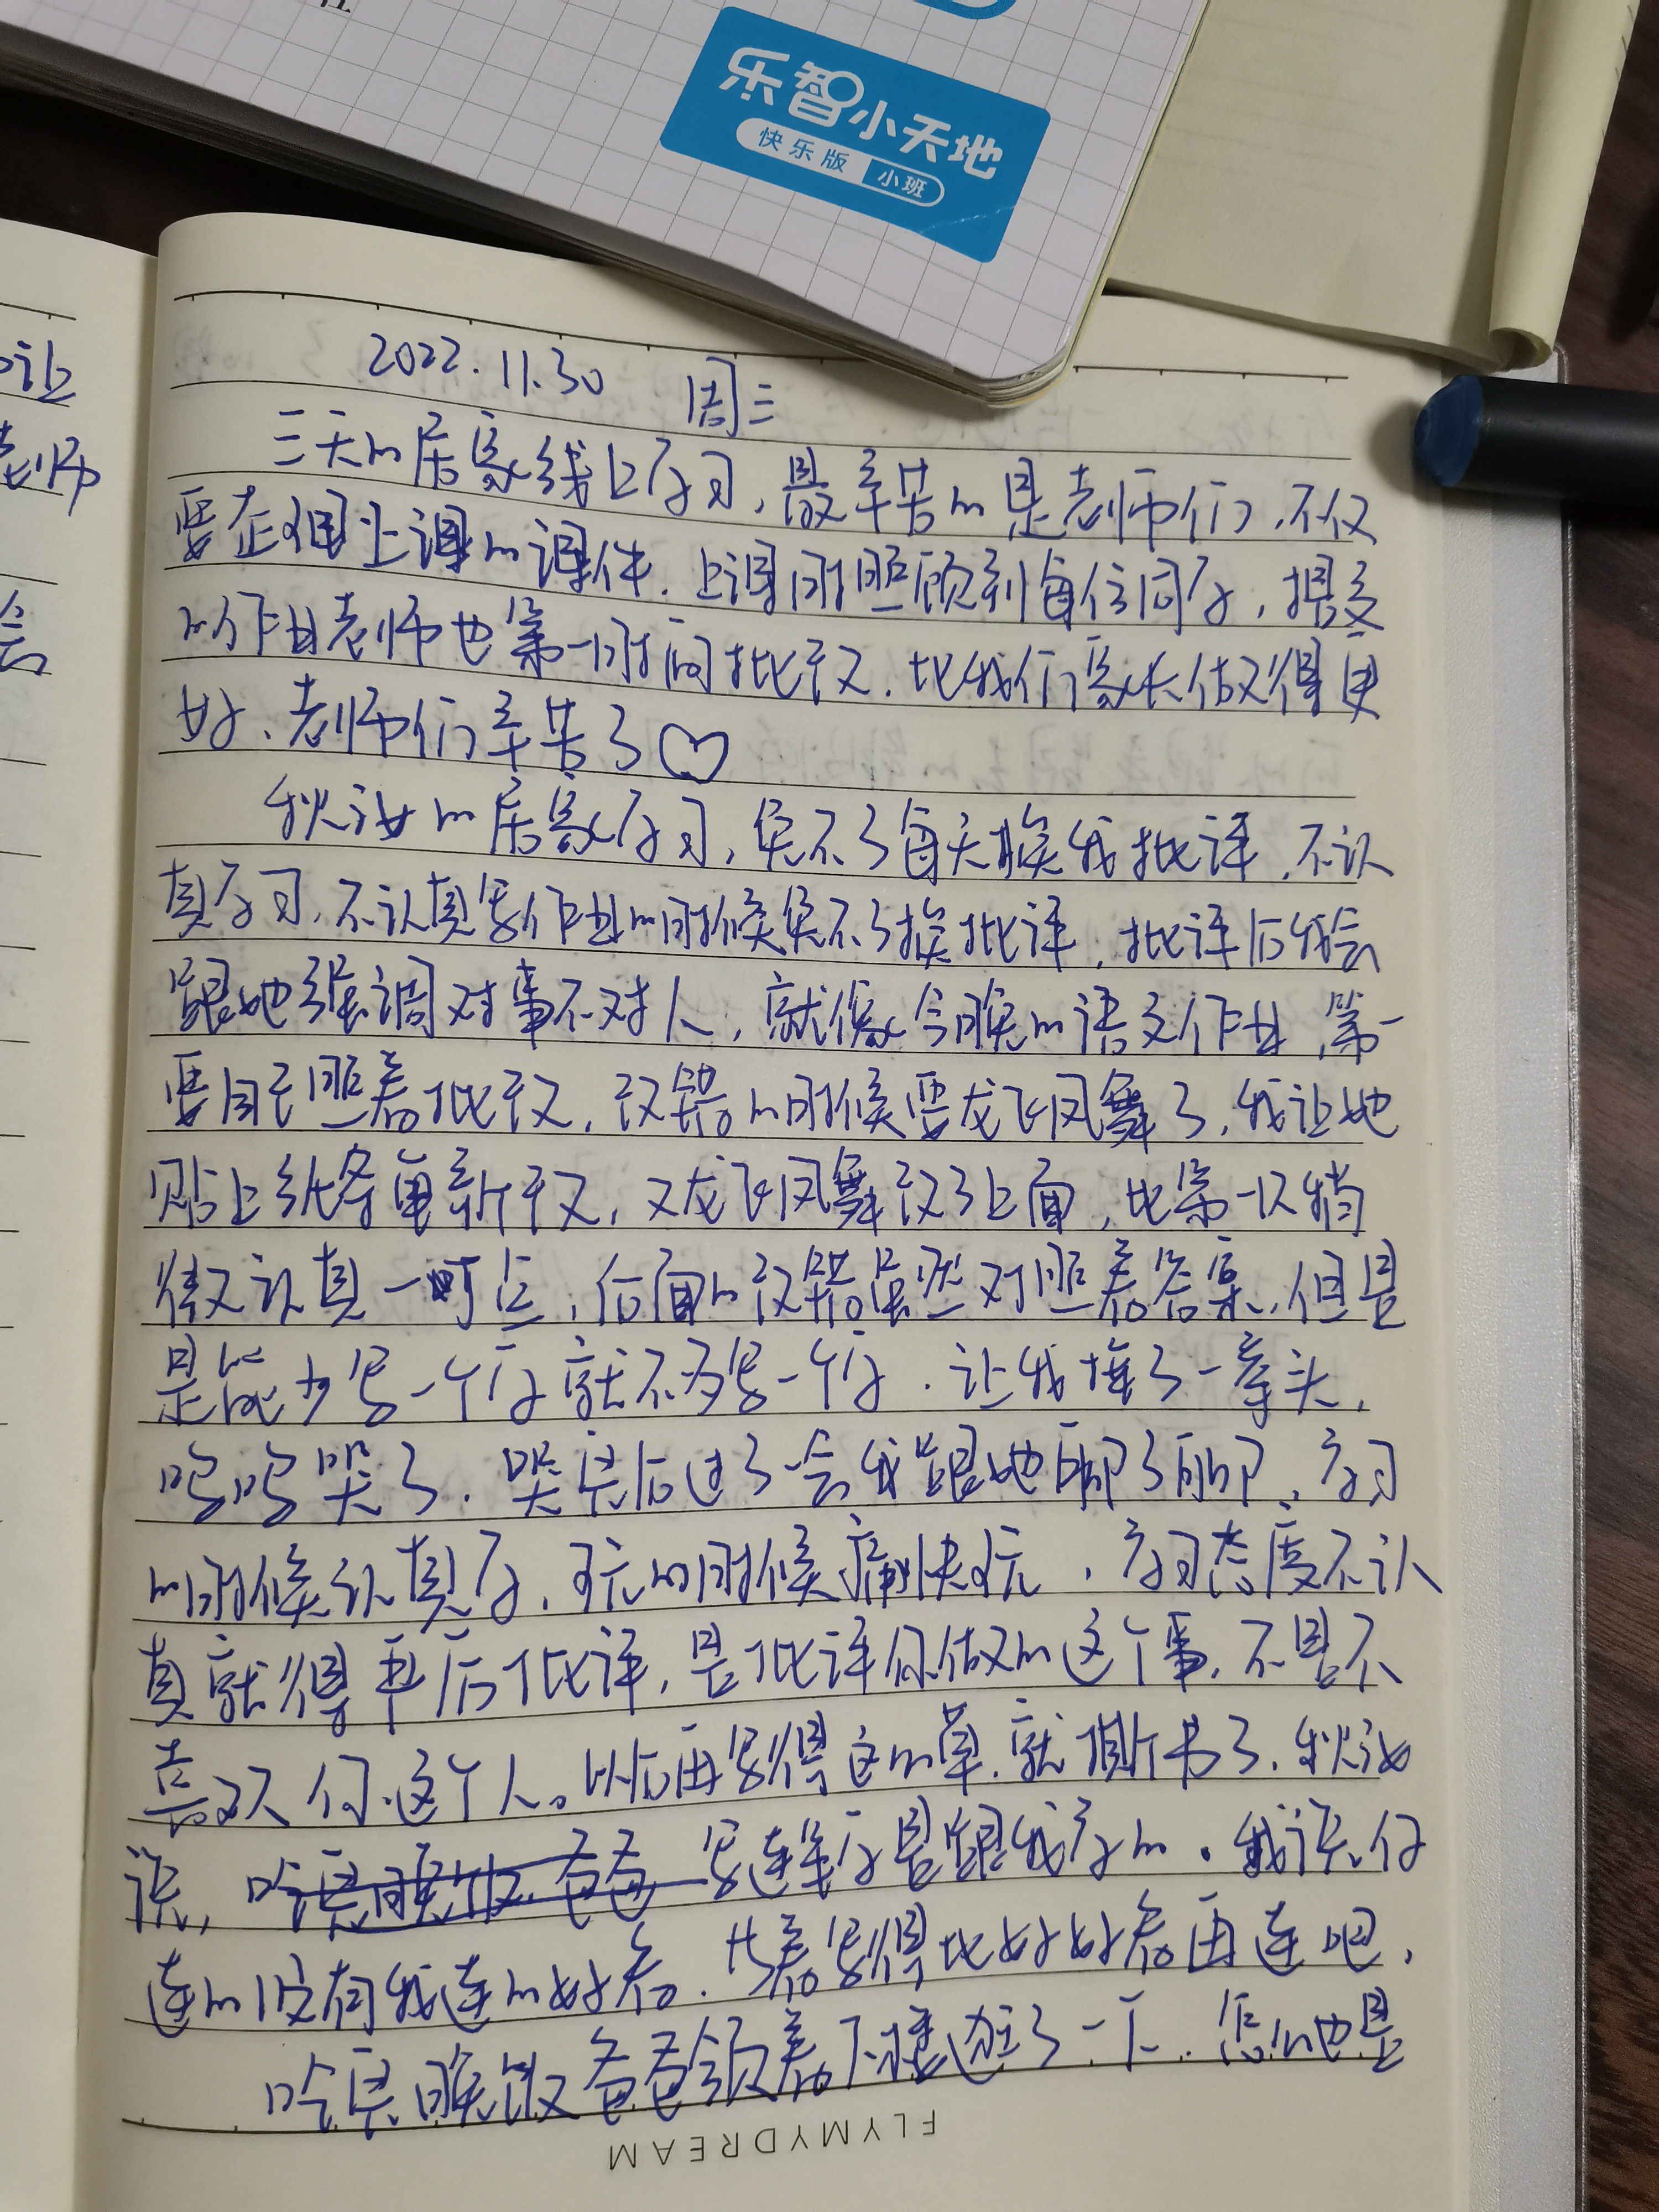 乐智小天地
快乐版 小班
让
老师
会
2022.11.30 周三
三天的居家线上学习，最辛苦的是老师们，不仅
要在准上课的课件，上课时照顾到每位同学，提交
的作业老师也第一时间批改，比我们家长做得更
好，老师们辛苦了♡
秋汝的居家学习，免不了每天挨我批评，不认
真学习，不认真写作业的时候免不了挨批评，批评后我会
跟她强调对事不对人，就像今晚的语文作业，第一
要自己照着批改，改错的时候要龙飞凤舞了，我让她
贴上纸条重新改，又龙飞凤舞改了上面，比第一次稍
微认真一丁点，后面的改错虽然对照着答案，但是
是能少写一个字就不多写一个字，让我捶了一拳头，
呜呜哭了，哭完后过了一会我跟她聊了聊，学习
的时候认真学，玩的时候痛快玩，学习态度不认
真就得事后批评，是批评你做的这个事，不是不
喜欢你这个人。以后再写得这的草，就撕书了，秋汝
说，吃完晚饭爸爸写连笔字是跟我学的，我说你
连的没有我连的好看，等写得比好好看再连吧，
吃完晚饭爸爸领着下楼逛了一下，怎么也是
FLYMYDREAM